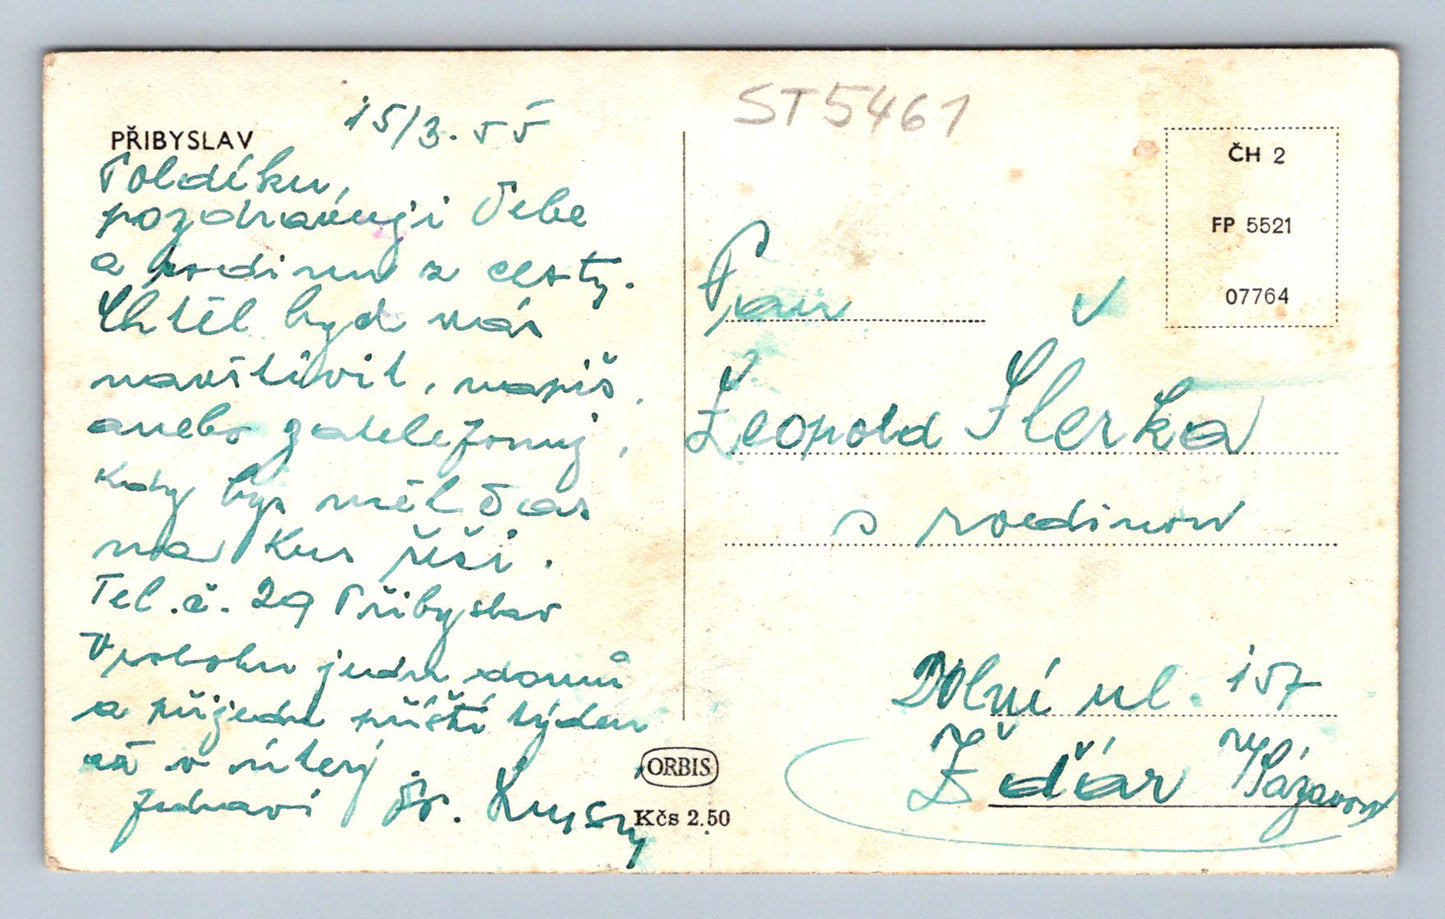 ST5461
15/3. 55
PŘIBYSLAV
Poldíku,
pozdravuji Tebe
a rodinu z cesty.
Chtěl bych vás
navštívit, napiš,
anebo zatelefonuj,
kdy bys měl čas
na kus řeči.
Tel. č. 29 Přibyslav
V sobotu jedu domů
a přijedu příští týden
až v úterý.
Zdraví Dr.
ORBIS
Kčs 2.50
ČH 2
FP 5521
07764
Pan
Leopold Šlerka
s rodinou
Dolní ul. 157
Žďár n/Sázavou